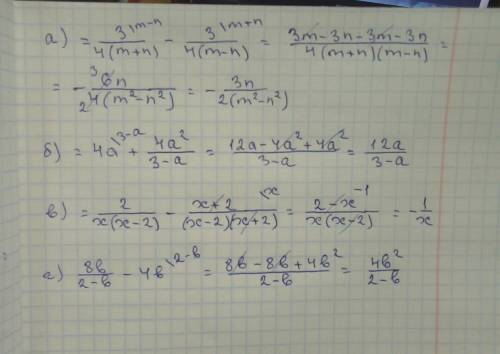 а) = 3\m-n / 4(m+n) - 3\m+n / 4(m-n) = 3m-3n-3m-3n / 4(m+n)(m-n) =
= - 6n 3 / 2 4(m²-n²) = - 3n / 2(m²-n²)
б) = 4a\3-a + 4a² / 3-a = 12a-4a²+4a² / 3-a = 12a / 3-a
в) = 2 / x(x-2) - x+2 \x / (x-2)(x+2) = 2-x -1 / x(x-2) = - 1 / x
г) 8b / 2-b - 4b\2-b = 8b-8b+4b² / 2-b = 4b² / 2-b